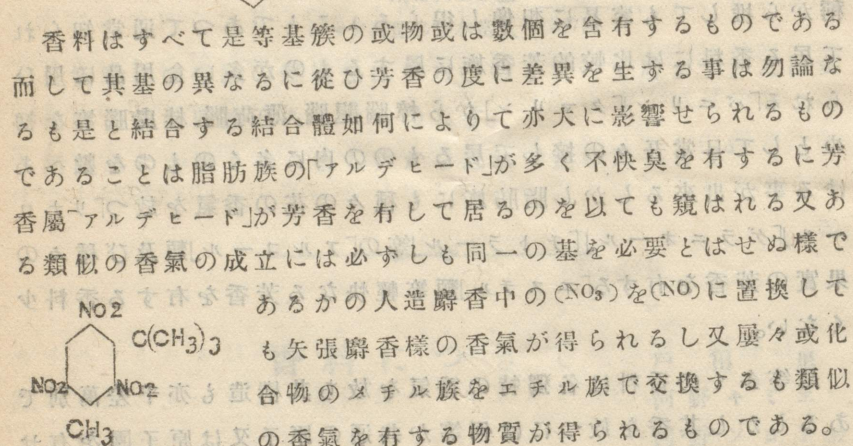 香料はすべて是等基簇の或物或は數個を含有するものである
而して其基の異なるに從ひ芳香の度に差異を生ずる事は勿論な
るも是と結合する結合體如何によりて亦大に影響せられるもの
であることは脂肪族の「アルデヒード」が多く不快臭を有するに芳
香屬「アルデヒード」が芳香を有して居るのを以ても窺はれる又あ
る類似の香氣の成立には必ずしも同一の基を必要とはせぬ樣で
あるかの人造麝香中の(NO₃)を(NO)に置換して
も矢張麝香樣の香氣が得られるし又屢々或化
合物のメチル族をエチル族で交換するも類似
の香氣を有する物質が得られるものである。
NO2
C(CH3)3
NO2 NO2
CH3